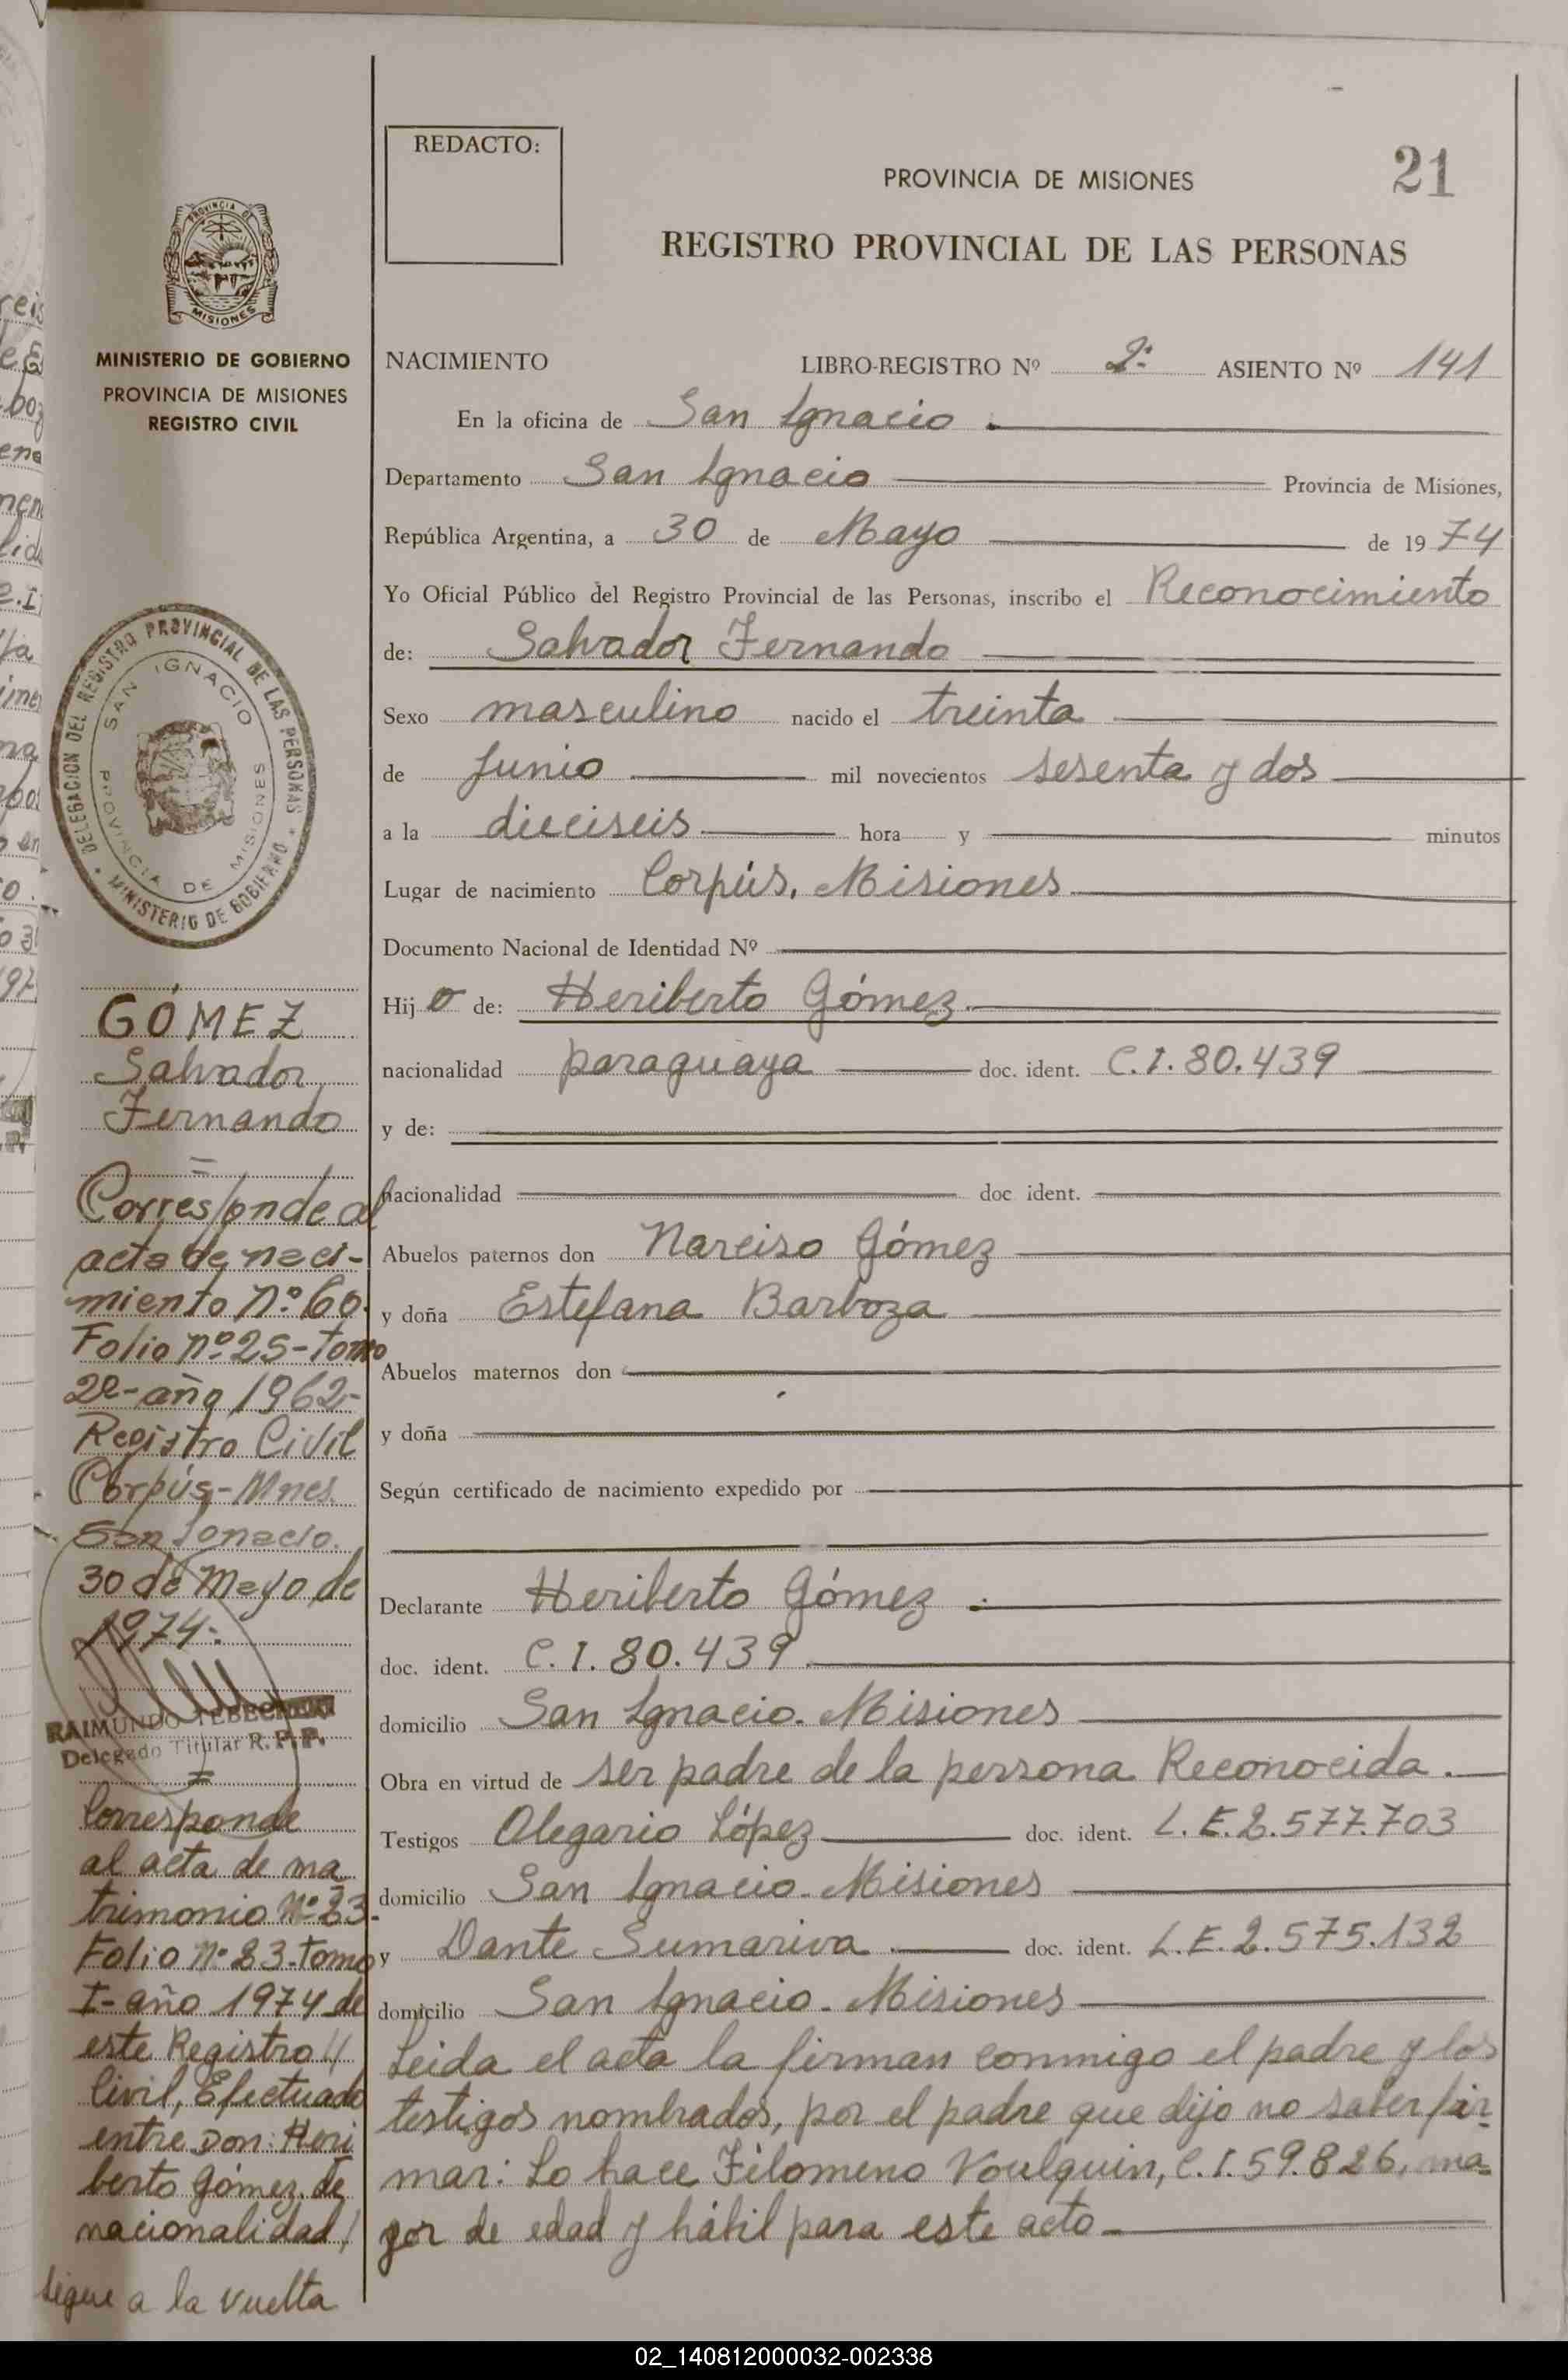 REDACTO:
PROVINCIA DE MISIONES
21
REGISTRO PROVINCIAL DE LAS PERSONAS
PROVINCIA DE
MISIONES
MINISTERIO DE GOBIERNO
PROVINCIA DE MISIONES
REGISTRO CIVIL
NACIMIENTO LIBRO-REGISTRO Nº 2º ASIENTO Nº 141
En la oficina de San Ignacio
Departamento San Ignacio Provincia de Misiones,
República Argentina, a 30 de Mayo de 1974
Yo Oficial Público del Registro Provincial de las Personas, inscribo el Reconocimiento
de: Salvador Fernando
Sexo masculino nacido el treinta
de Junio mil novecientos sesenta y dos
a la dieciseis hora y minutos
Lugar de nacimiento Corpús, Misiones
Documento Nacional de Identidad Nº
Hijo de: Heriberto Gómez
nacionalidad paraguaya doc. ident. C.I. 80.439
y de:
nacionalidad doc ident.
Abuelos paternos don Narciso Gómez
y doña Estefana Barboza
Abuelos maternos don
y doña
Según certificado de nacimiento expedido por
Declarante Heriberto Gómez
doc. ident. C.I. 80.439
domicilio San Ignacio. Misiones
Obra en virtud de ser padre de la persona Reconocida.
Testigos Olegario López doc. ident. L.E. 2.577.703
domicilio San Ignacio. Misiones
y Dante Sumariva doc. ident. L.E. 2.575.132
domicilio San Ignacio. Misiones
Leida el acta la firman conmigo el padre y los
testigos nombrados, por el padre que dijo no saber fir-
mar: Lo hace Filomeno Voulquin, C.I. 59.826, ma-
yor de edad y hábil para este acto.
DELEGACION DEL REGISTRO PROVINCIAL DE LAS PERSONAS
MINISTERIO DE GOBIERNO
SAN IGNACIO
PROVINCIA DE MISIONES
GÓMEZ
Salvador
Fernando
=
Corresponde al
acta de naci-
miento Nº 60.
Folio nº 25-tomo
2º-año 1962-
Registro Civil
Corpús-Mnes.
San Ignacio.
30 de Mayo de
1974.
RAIMUNDO
Delegado Titular R. P. P.
=
Corresponde
al acta de ma
trimonio Nº 23.
Folio Nº 23-tomo
I-año 1974 de
este Registro //
Civil, Efectuado
entre Don: Heri
berto Gómez, de
nacionalidad/
sigue a la vuelta
02_140812000032-002338